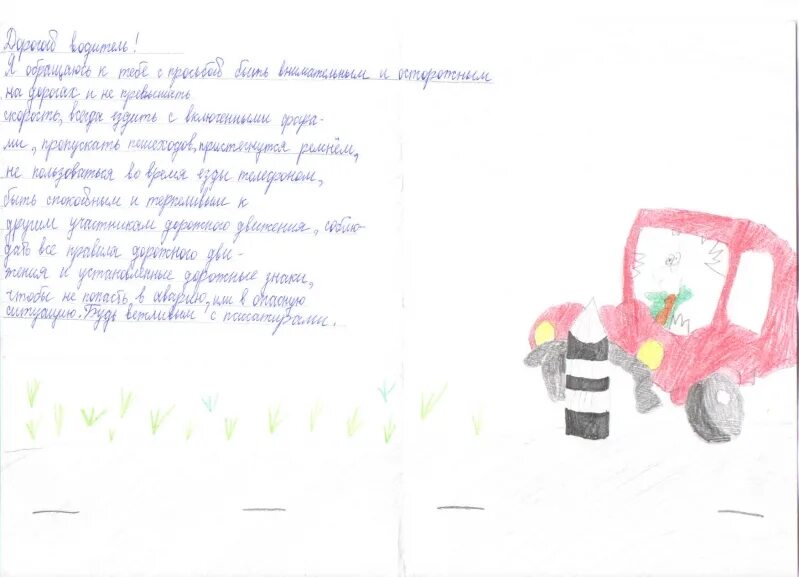 Дорогой водитель!
Я обращаюсь к тебе с просьбой быть внимательным и осторожным
на дорогах и не превышать
скорость, всегда ездить с включенными фара-
ми, пропускать пешеходов, пристегнутся ремнём,
не пользоваться во время езды телефоном,
быть спокойным и терпеливым к
другим участникам дорожного движения, соблю-
дать все правила дорожного дви-
жения и установленные дорожные знаки,
чтобы не попасть в аварию, или в опасную
ситуацию. Будь вежливым с пассажирами.